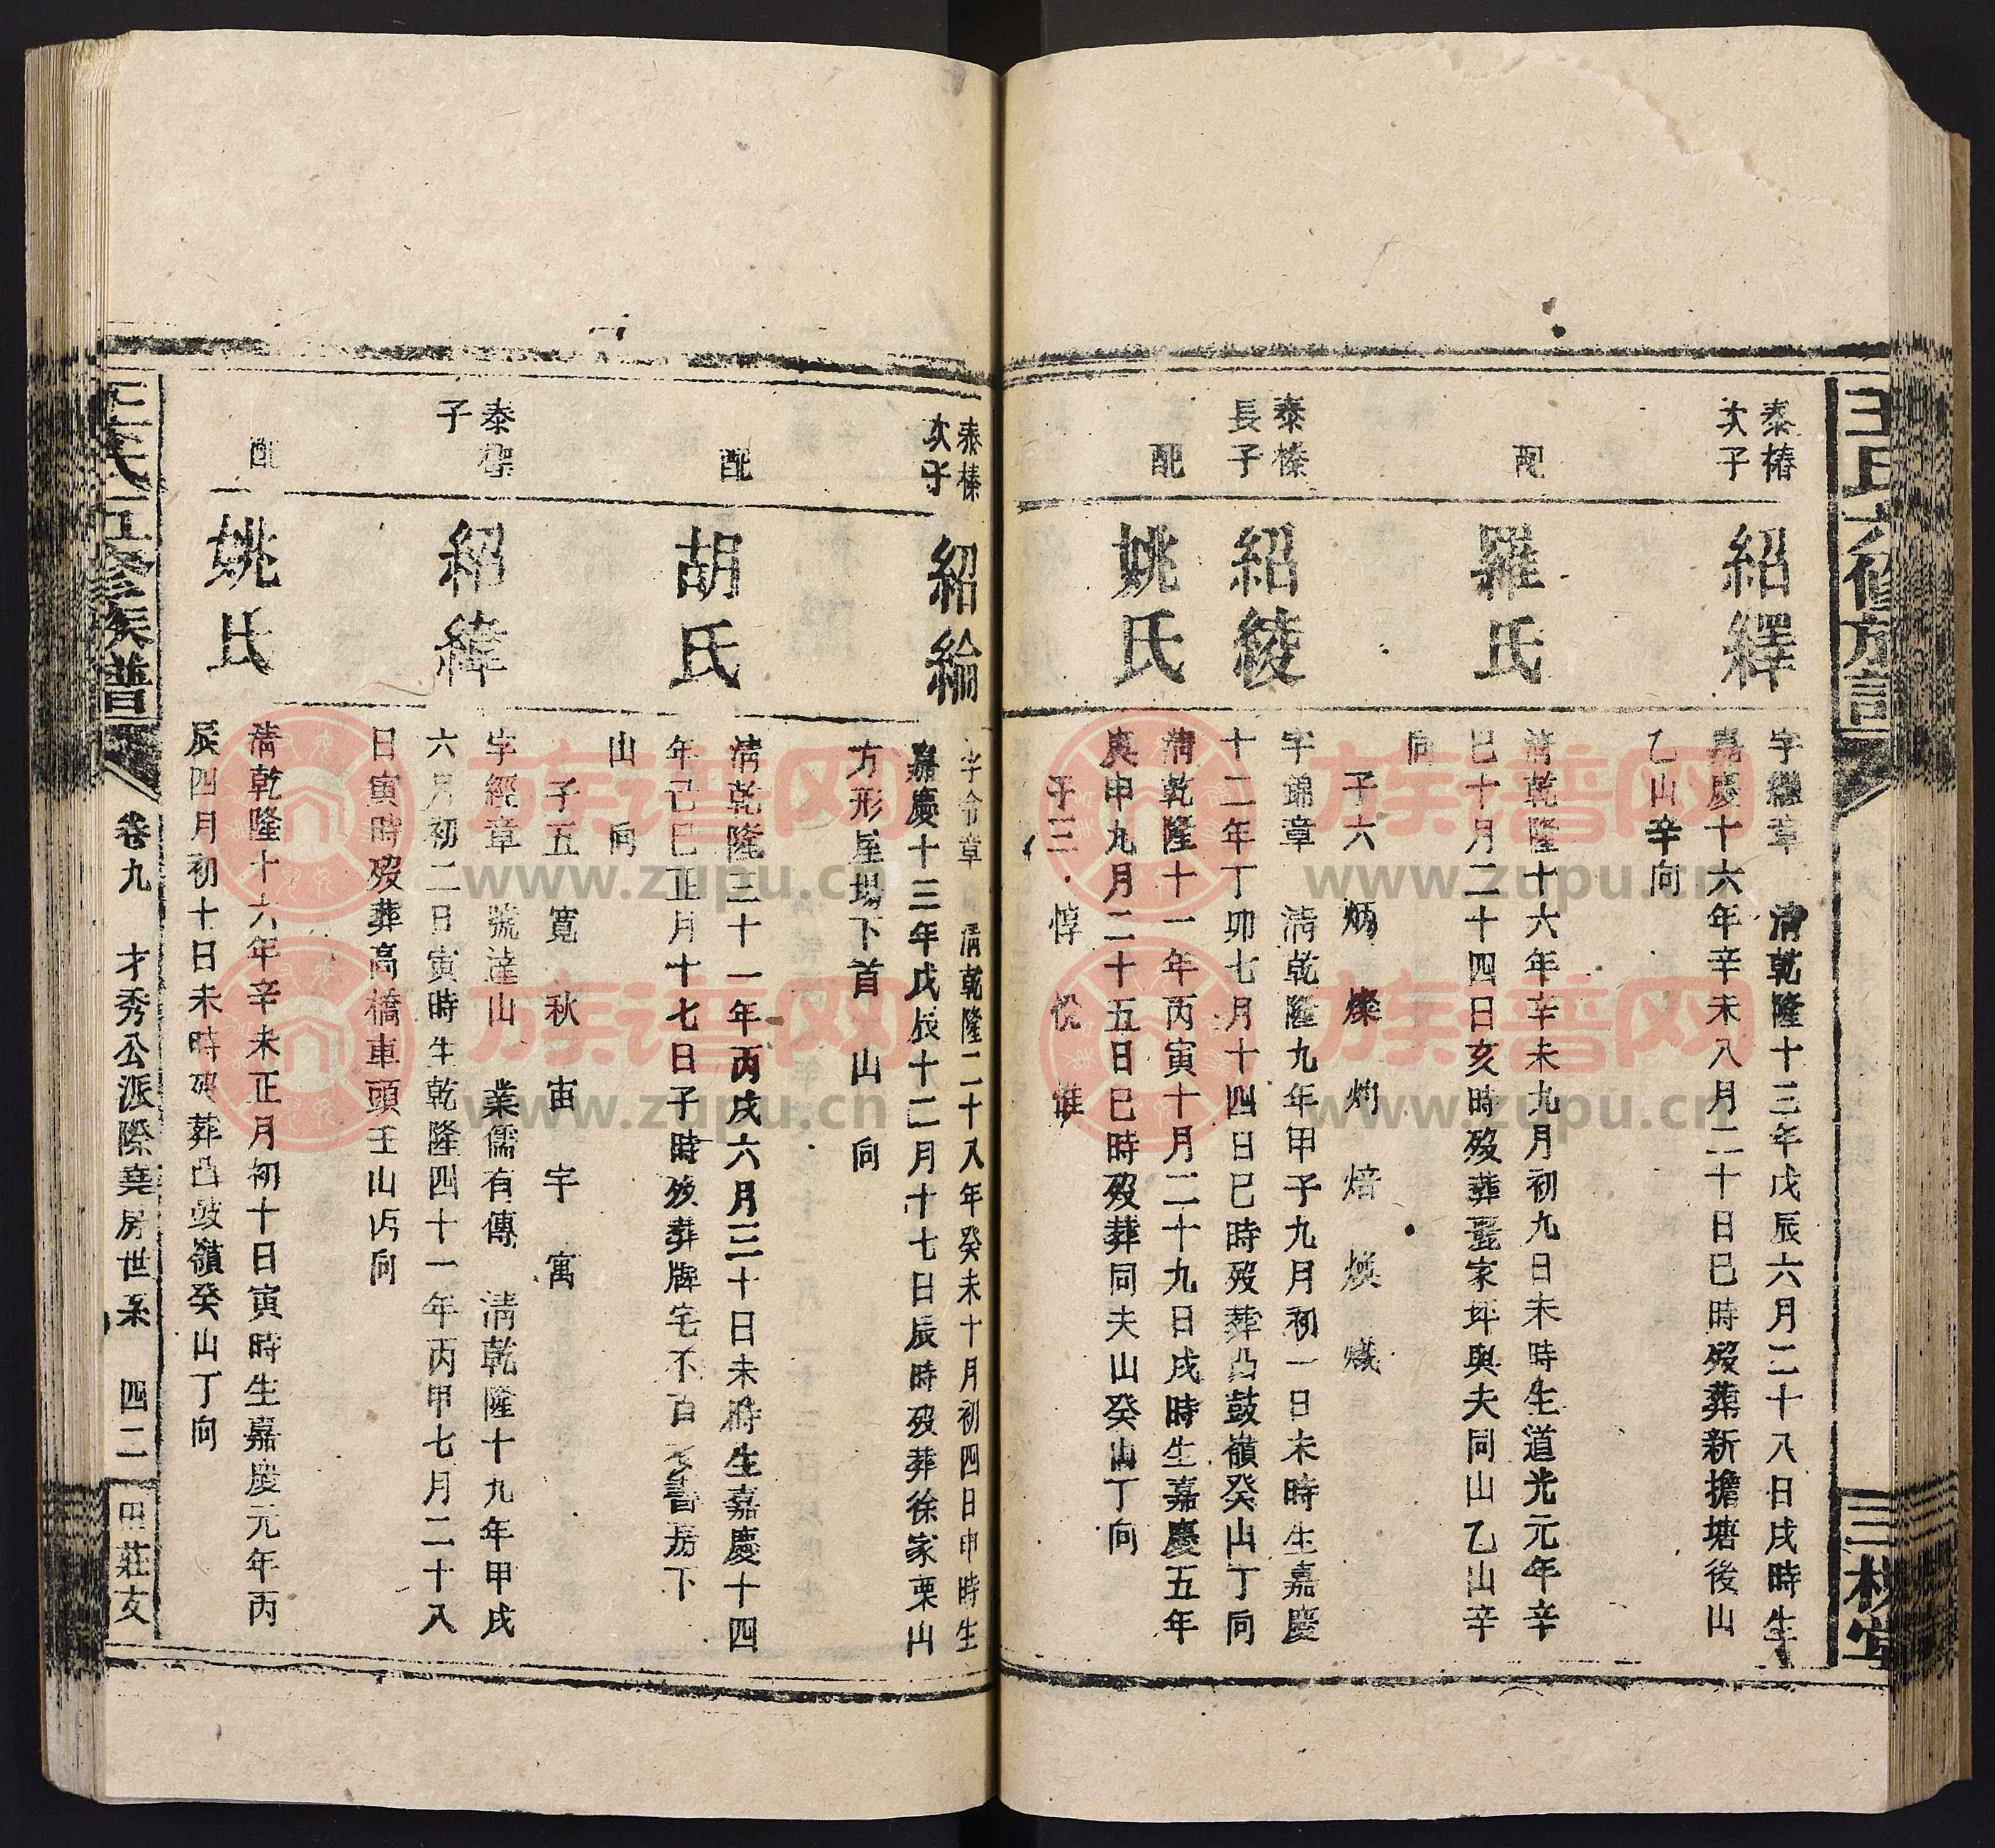 王氏六修族譜
三槐堂
泰椿
次子
紹繹
字繼章 清乾隆十三年戊辰六月二十八日戌時生
嘉慶十六年辛未八月二十日巳時歿葬新擔塘後山
乙山辛向
配
羅氏
清乾隆十六年辛未九月初九日未時生道光元年辛
巳十月二十四日亥時歿葬聶家坪與夫同山乙山辛
向
子六 炳 燦 灼 焙 煥 熾
泰榛
長子
紹綾
字錦章 清乾隆九年甲子九月初一日未時生嘉慶
十二年丁卯七月十四日巳時歿葬凸鼓嶺癸山丁向
配
姚氏
清乾隆十一年丙寅十月二十九日戌時生嘉慶五年
庚申九月二十五日巳時歿葬同夫山癸山丁向
子三 惇 悅 惟
泰榛
次子
紹綸
字命章 清乾隆二十八年癸未十月初四日申時生
嘉慶十三年戊辰十二月十七日辰時歿葬徐家栗山
方形屋場下首 山 向
配
胡氏
清乾隆三十一年丙戌六月三十日未時生嘉慶十四
年己巳正月十七日子時歿葬牌宅不 書房下
山 向
子五 寬 秋 宙 宇 寓
泰
子
紹緯
字經章 號達山 業儒有傳 清乾隆十九年甲戌
六月初二日寅時生乾隆四十一年丙申七月二十八
日寅時歿葬高橋車頭壬山丙向
配
姚氏
清乾隆十六年辛未正月初十日寅時生嘉慶元年丙
辰四月初十日未時歿葬凸鼓嶺癸山丁向
王氏五修族譜
卷九 才秀公派際堯房世系 四二
田莊支
族谱网
www.zupu.cn
族谱网
www.zupu.cn
族谱网
www.zupu.cn
族谱网
www.zupu.cn